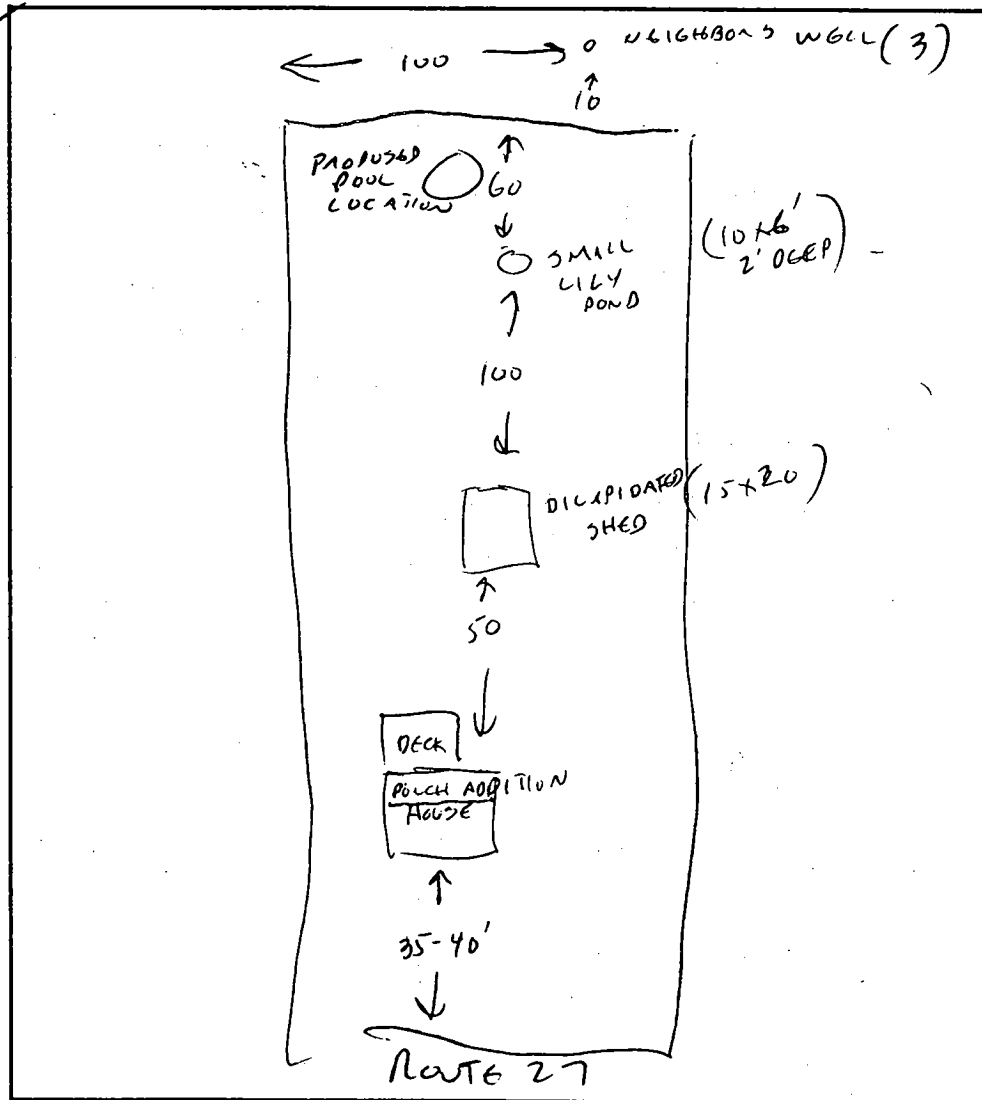 100 NEIGHBORS WELL (3)
10
PROPOSED
POOL
LOCATION
60
SMALL
LILY
POND
(10x6'
2' DEEP)
100
DILAPIDATED
SHED
(15x20)
50
DECK
PORCH ADDITION
HOUSE
35-40'
ROUTE 27